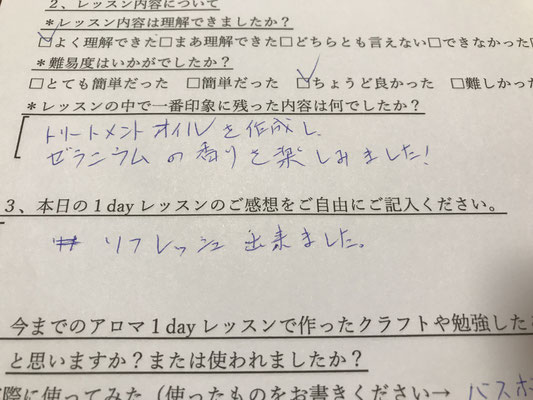 2、レッスン内容について
*レッスン内容は理解できましたか?
☑よく理解できた□まあ理解できた□どちらとも言えない□できなかった□
*難易度はいかがでしたか?
□とても簡単だった □簡単だった ☑ちょうど良かった □難しかった
*レッスンの中で一番印象に残った内容は何でしたか?
トリートメントオイルを作成し、
ゼラニウムの香りを楽しみました!
3、本日の1dayレッスンのご感想をご自由にご記入ください。
リフレッシュ出来ました。
今までのアロマ1dayレッスンで作ったクラフトや勉強した
と思いますか?または使われましたか?
際に使ってみた(使ったものをお書きください→ バスボ